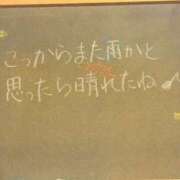 こっからまた雨かと
思ったら晴れたね♪